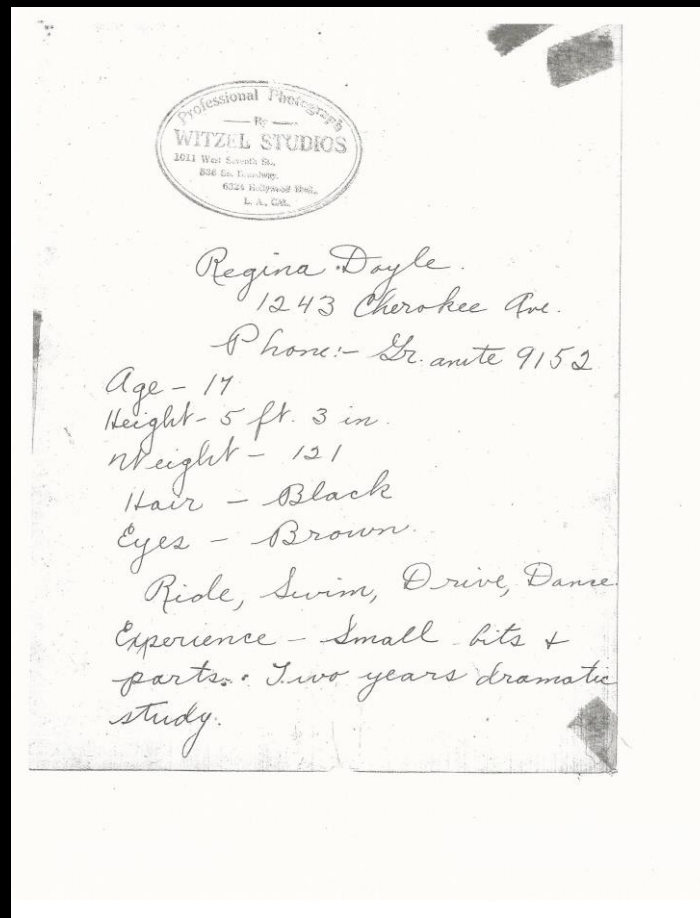 Professional Photograph
By
WITZEL STUDIOS
1011 West Seventh St.,
836 So. Broadway.
6324 Hollywood Blvd.,
L. A., CAL.
Regina Doyle.
1243 Cherokee Ave.
Phone:- Gr. anite 9152
Age - 17
Height - 5 ft. 3 in.
Weight - 121
Hair - Black
Eyes - Brown.
Ride, Swim, Drive, Dance.
Experience - Small bits +
parts. Two years dramatic
study.